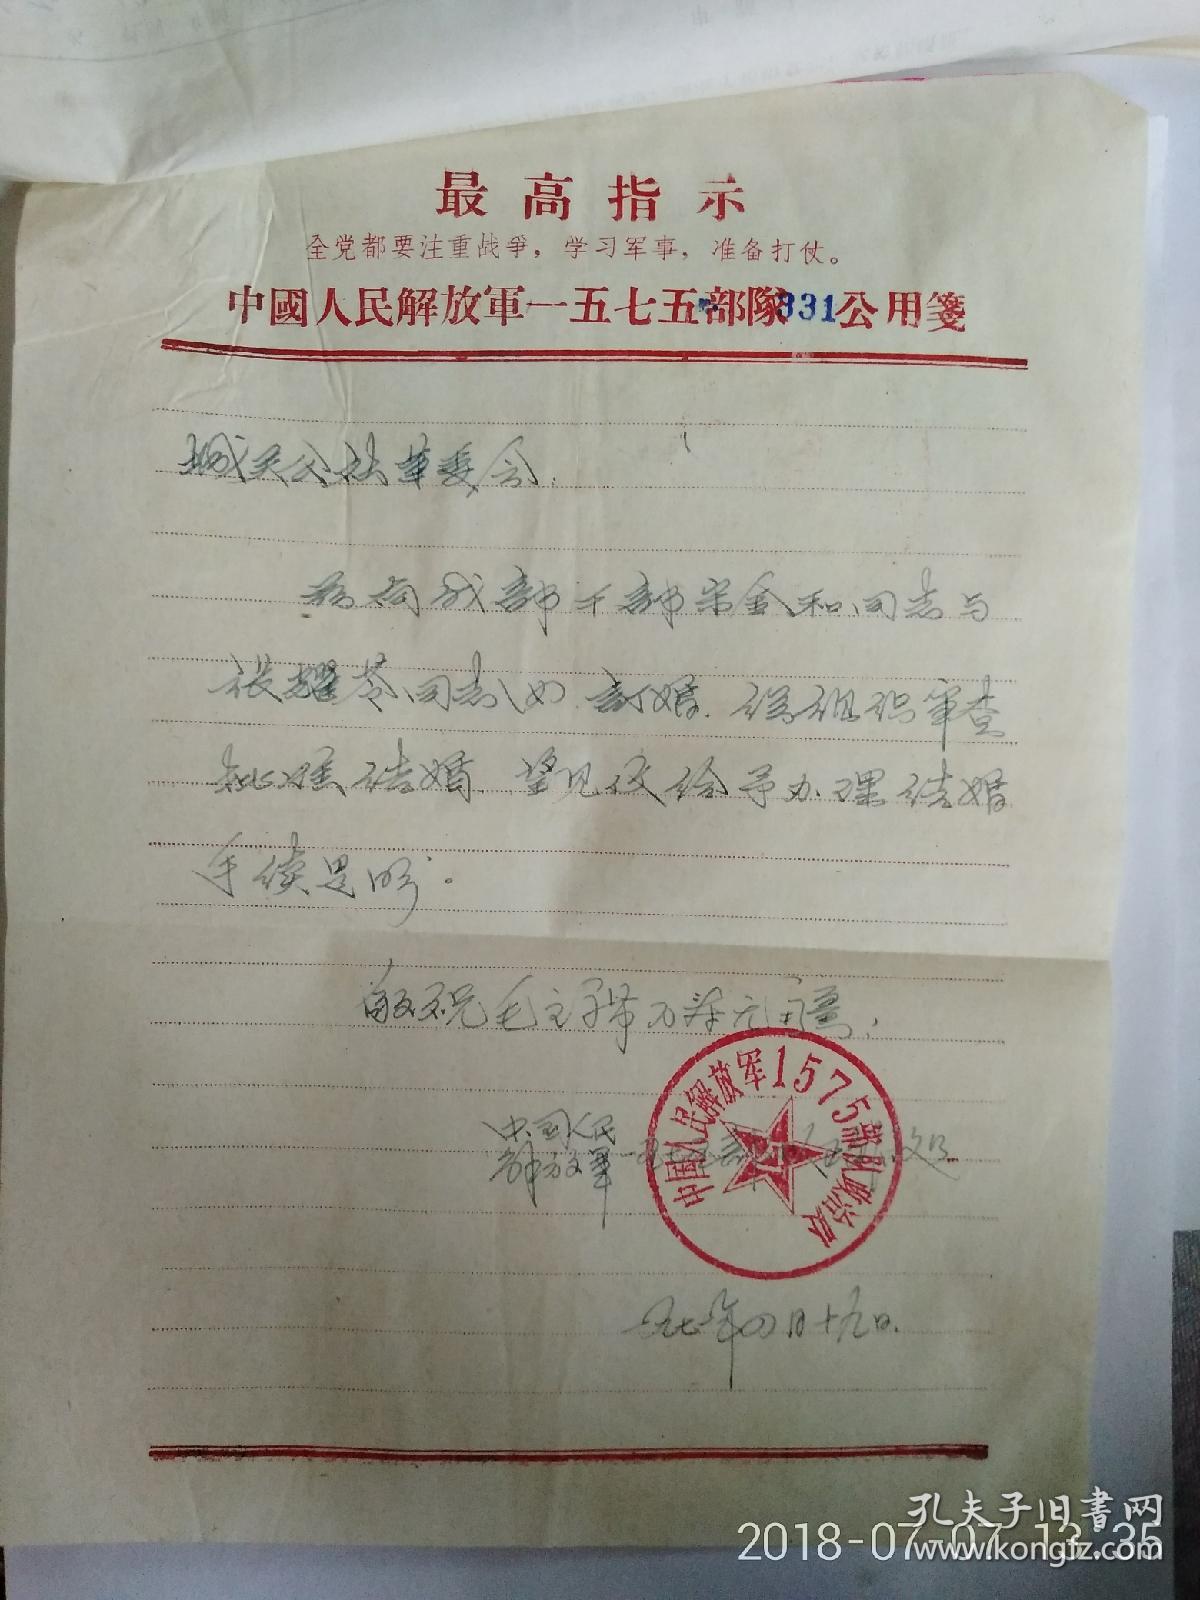 最高指示
全党都要注重战争，学习军事，准备打仗。
中國人民解放軍一五七五部隊331公用箋
城关公社革委会：
兹有我部干部宋金和同志与
张耀苓同志(女)订婚．经组织审查
批准结婚．望见信给予办理结婚
手续是盼。
敬祝毛主席万寿无疆！
中国人民
解放军一五七五部队
中国人民解放军1575部队政治处
七〇年四月十九日．
孔夫子旧書网
2018-07-07 13:35
www.kongfz.com